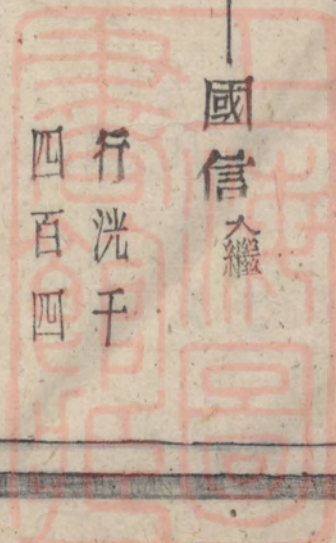 國信入繼
行洸千
四百四